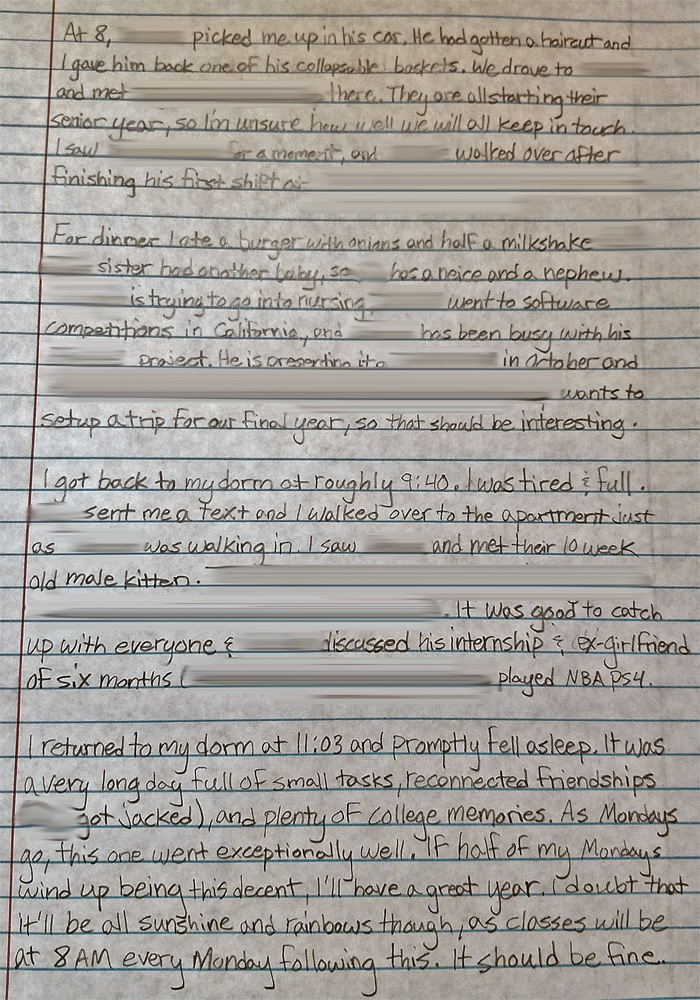 At 8, picked me up in his car. He had gotten a haircut and
I gave him back one of his collapsable baskets. We drove to
and met there. They are all starting their
senior year, so I'm unsure how well we will all keep in touch.
I saw for a moment, and walked over after
finishing his first shift at
For dinner I ate a burger with onions and half a milkshake
sister had another baby, so has a neice and a nephew.
is trying to go into nursing, went to software
competitions in California, and has been busy with his
project. He is presenting it in October and
wants to
setup a trip for our final year, so that should be interesting.
I got back to my dorm at roughly 9:40. I was tired & full.
sent me a text and I walked over to the apartment just
as was walking in. I saw and met their 10 week
old male kitten.
. It was good to catch
up with everyone & discussed his internship & ex-girlfriend
of six months ( played NBA PS4.
I returned to my dorm at 11:03 and promptly fell asleep. It was
a very long day full of small tasks, reconnected friendships
got jacked), and plenty of college memories. As Mondays
go, this one went exceptionally well. If half of my Mondays
wind up being this decent, I'll have a great year. I doubt that
it'll be all sunshine and rainbows though, as classes will be
at 8AM every Monday following this. It should be fine.